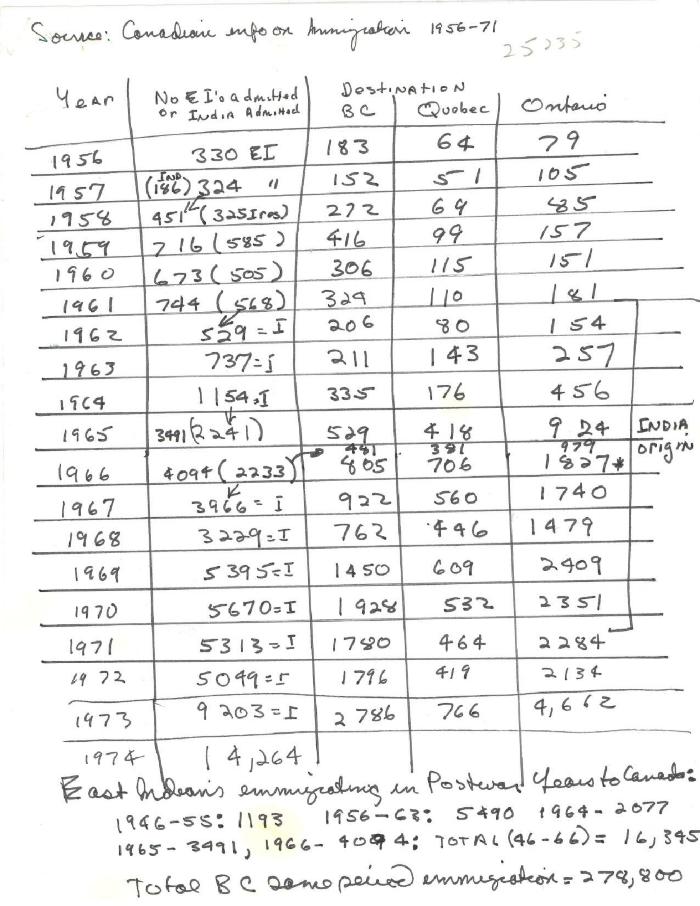 Source: Canadian info on Immigration 1956-71
25235
Year No EI's admitted or India Admitted Destination BC Quebec Ontario
1956 330 EI 183 64 79
1957 (IND 186) 324 " 152 51 105
1958 451 (325 Ires) 272 69 85
1959 716 (585) 416 99 157
1960 673 (505) 306 115 151
1961 744 (568) 324 110 181
1962 529 = I 206 80 154
1963 737 = I 211 143 257
1964 1154 = I 335 176 456
1965 3491 (2241) 529 418 924 INDIA
481 381 979 origin
1966 4094 (2233) 805 706 1827*
1967 3966 = I 922 560 1740
1968 3229 = I 762 446 1479
1969 5395 = I 1450 609 2409
1970 5670 = I 1928 532 2351
1971 5313 = I 1780 464 2284
1972 5049 = I 1796 419 2134
1973 9203 = I 2786 766 4,662
1974 14,264
East Indians emmigrating in Postwar Years to Canada:
1946-55: 1193 1956-63: 5490 1964- 2077
1965- 3491, 1966- 4094; TOTAL (46-66) = 16,345
Total BC same period emmigration = 278,800